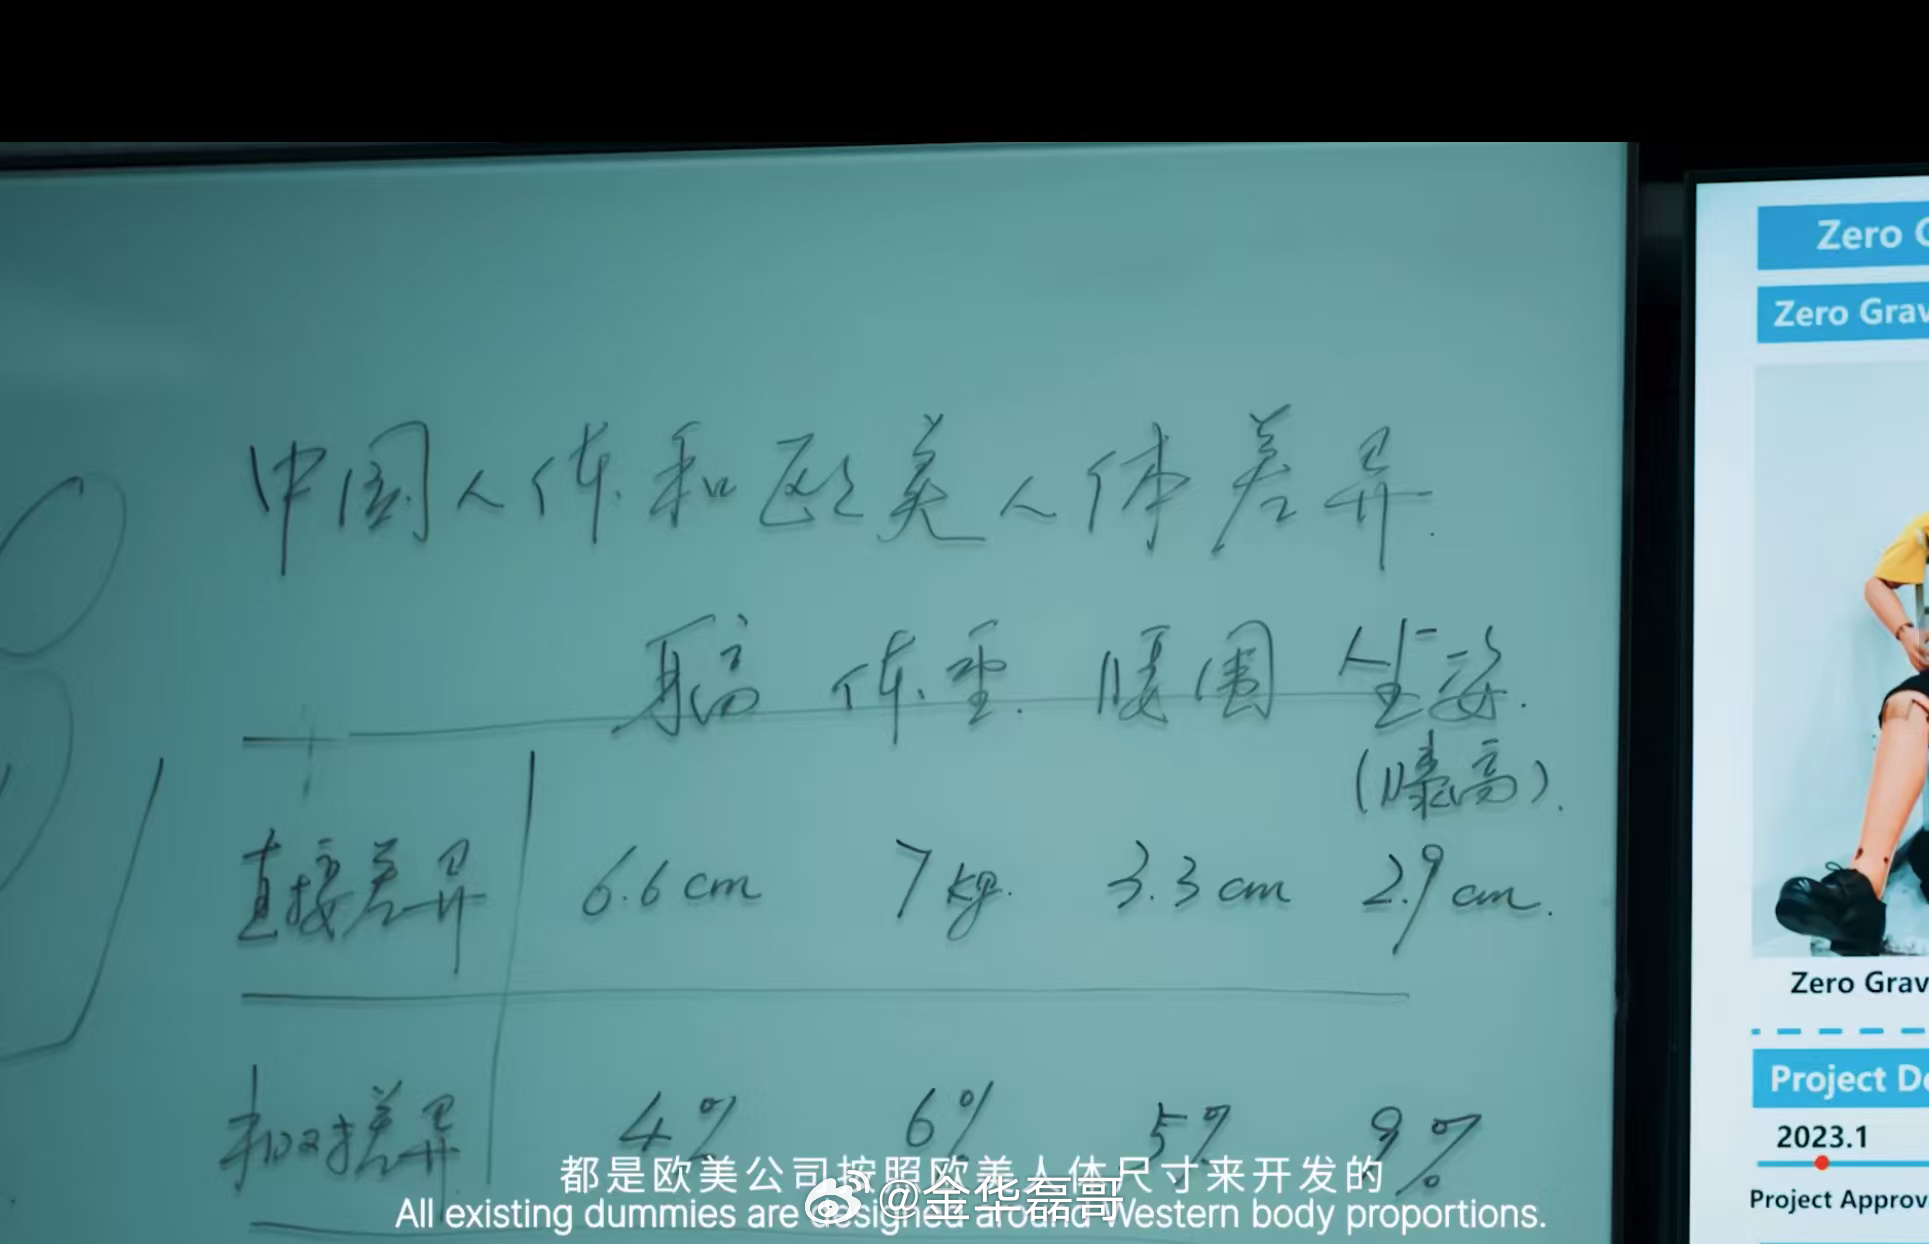 中国人体和欧美人体差异.
身高 体重. 腰围 坐姿.
(膝高).
直接差异 6.6cm 7kg. 3.3cm 2.9cm.
相对差异 4% 6% 5% 9%
都是欧美公司按照欧美人体尺寸来开发的
@金华磊哥
All existing dummies are designed around Western body proportions.
Zero G
Zero Grav
Zero Grav
Project De
2023.1
Project Approv